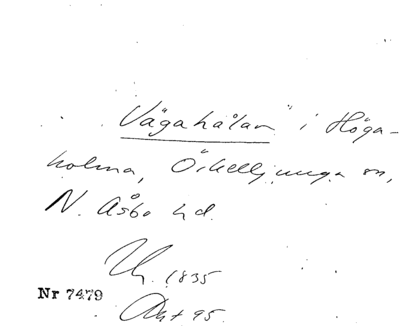 "Vägahålan" i Höga-
holma, Örkelljunga sn,
N. Åsbo hd.
1835
Nr 7479
Akt 95.